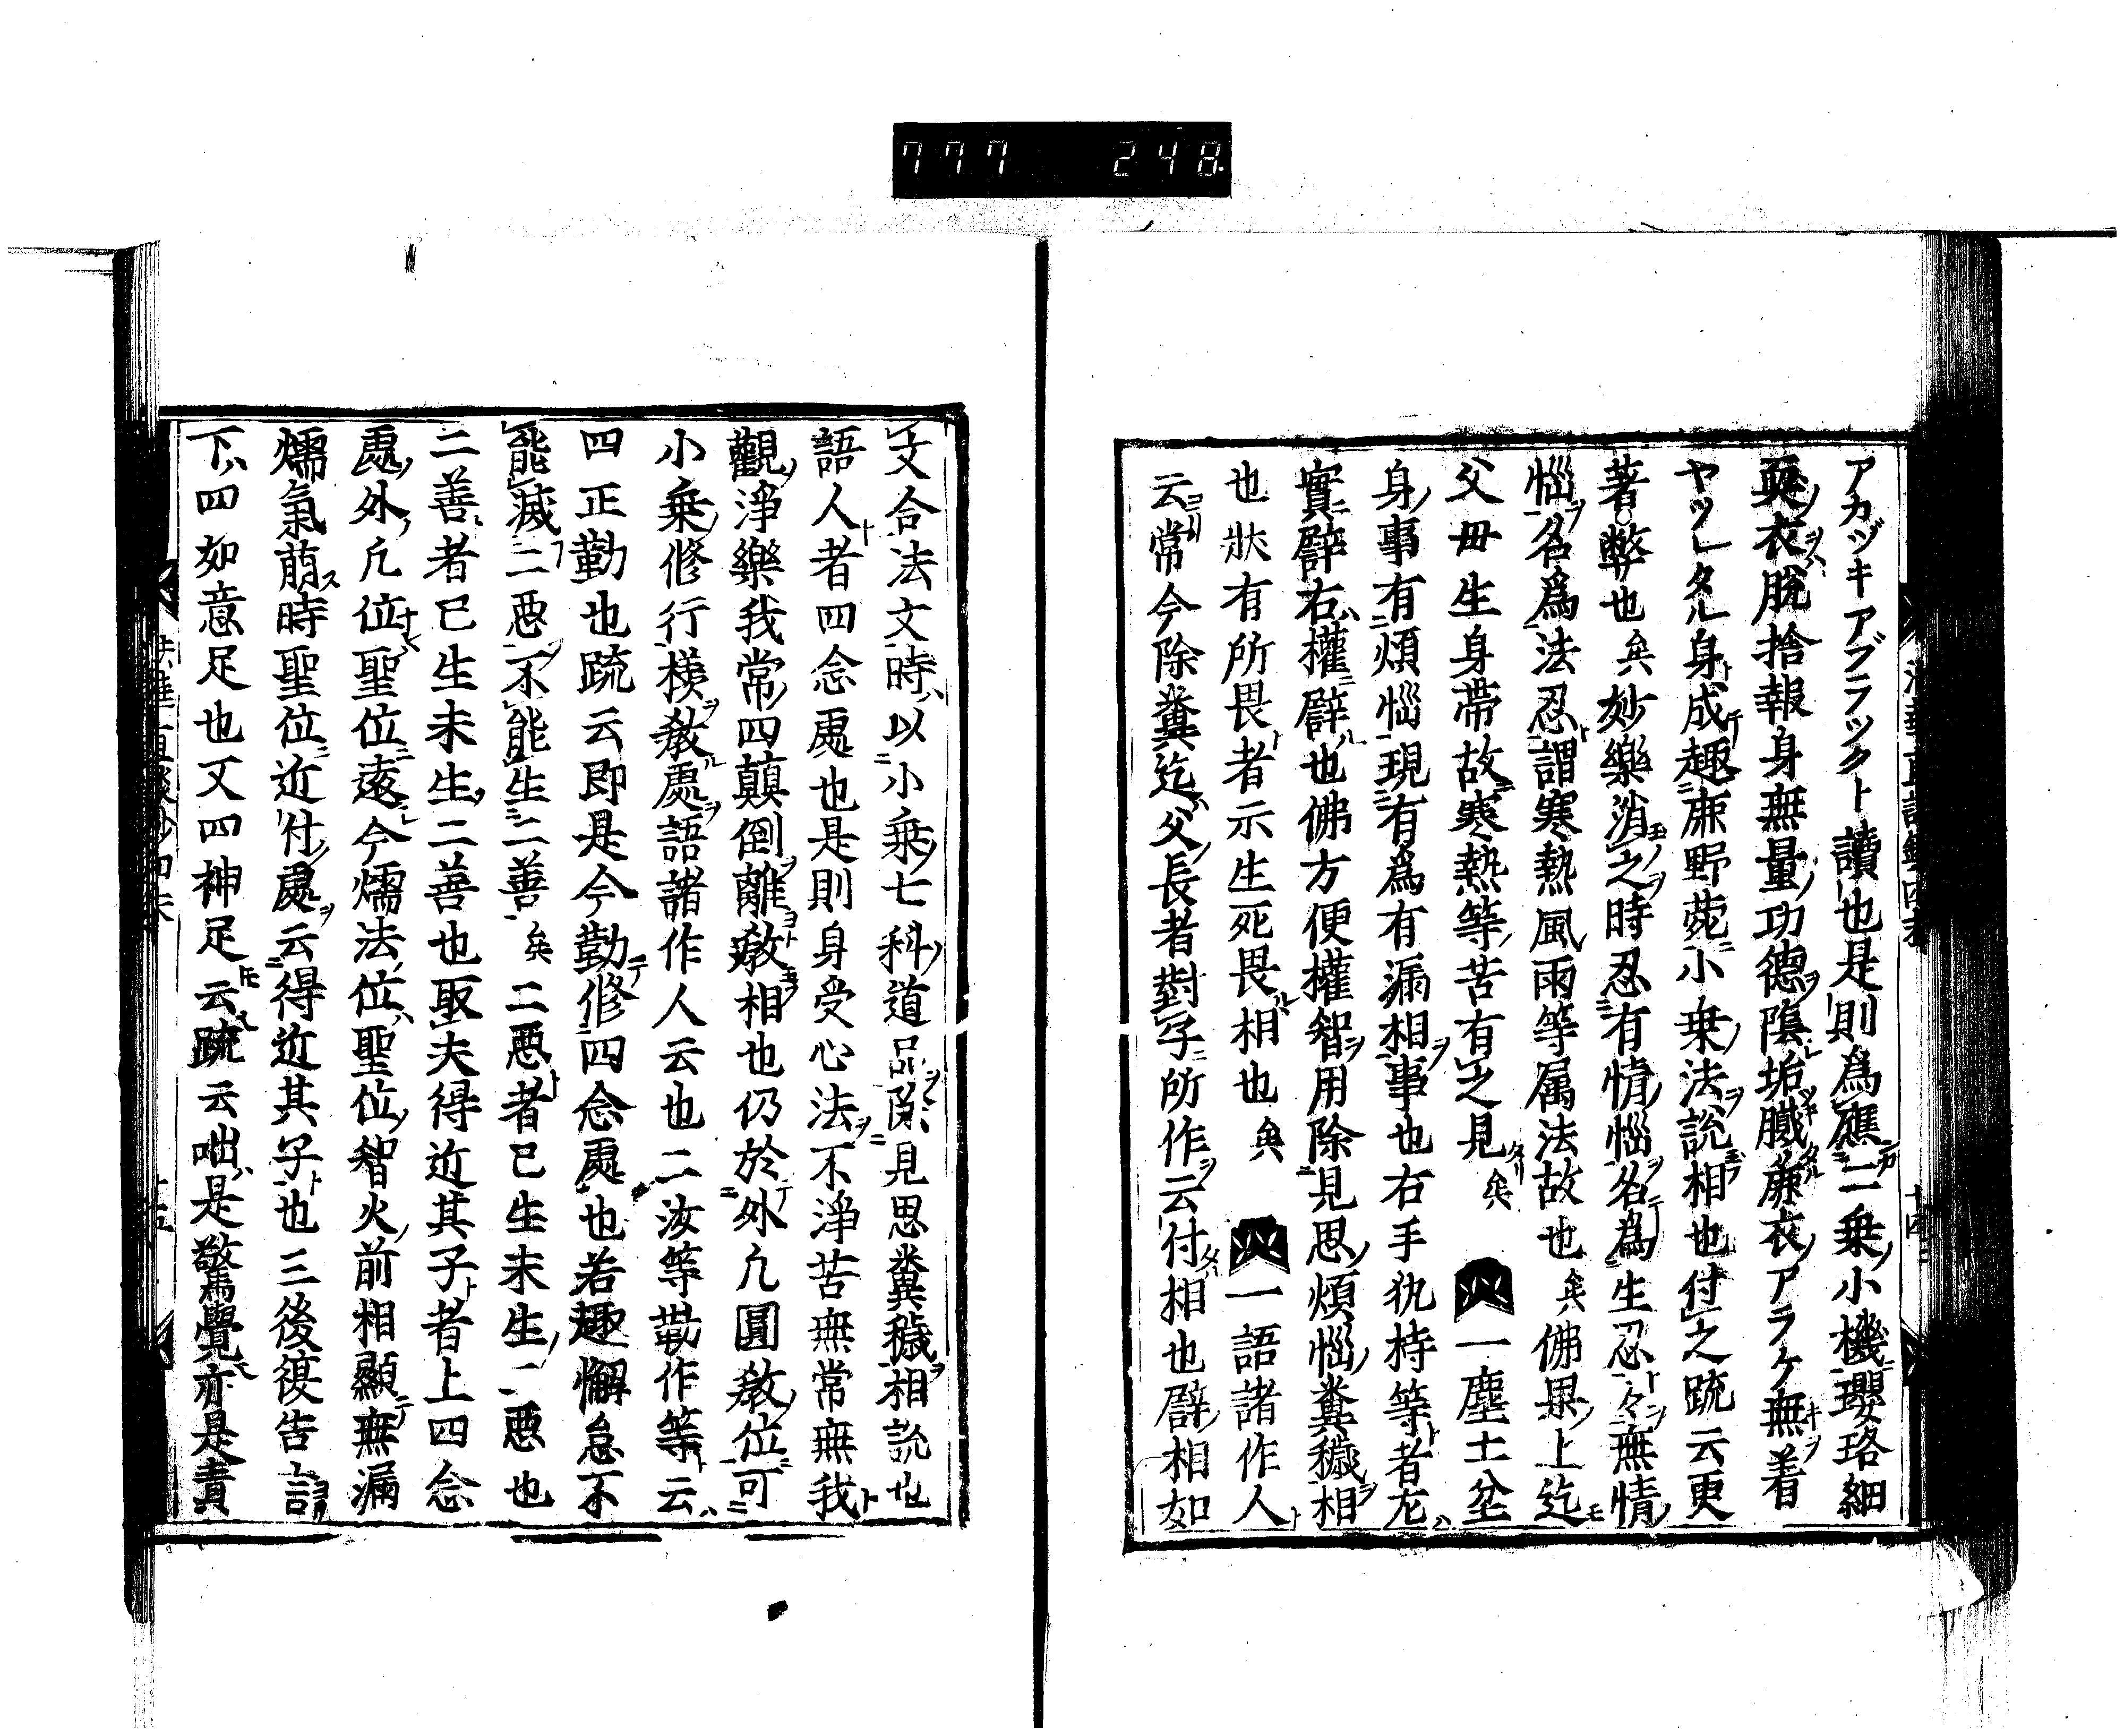 777 248
アカヅキアブラツクト讀也是則爲應二乗小機瓔珞細
耎衣脱捨報身無量功德隂垢膩麁衣アラケ無着
ヤツレタル身成趣鹿野菀小乗法説相也付之疏云更
著弊也矣妙樂消之時忍有情惱名爲生忍々無情
惱名爲法忍謂寒熱風雨等属法故也矣佛果上迄
父母生身帶故寒熱等苦有之見矣 一塵土坌
身事有煩惱現有爲有漏相事也右手執持等者左
實譬右權譬也佛方便權智用除見思煩惱糞穢相
也狀有所畏者示生死畏相也矣 一語諸作人
云常今除糞迄父長者對子所作云付相也譬相如
文合法文時以小乗七科道品除見思糞穢相説也
語人者四念處也是則身受心法不淨苦無常無我
觀淨樂我常四顛倒離教相也仍於外凡圓教位可
小乗修行横教處語諸作人云也二汝等勤作等云
四正勤也疏云即是今勤修四念處也若趣懈怠不
能滅二惡不能生二善矣二惡者已生未生二惡也
二善者已生未生二善也取夫得近其子者上四念
處外凡位聖位遠今煗法位聖位智火前相顯無漏
煗氣萠時聖位近付處云得近其子也三後復告言
下四如意足也又四神足云疏云咄是驚覺亦是責